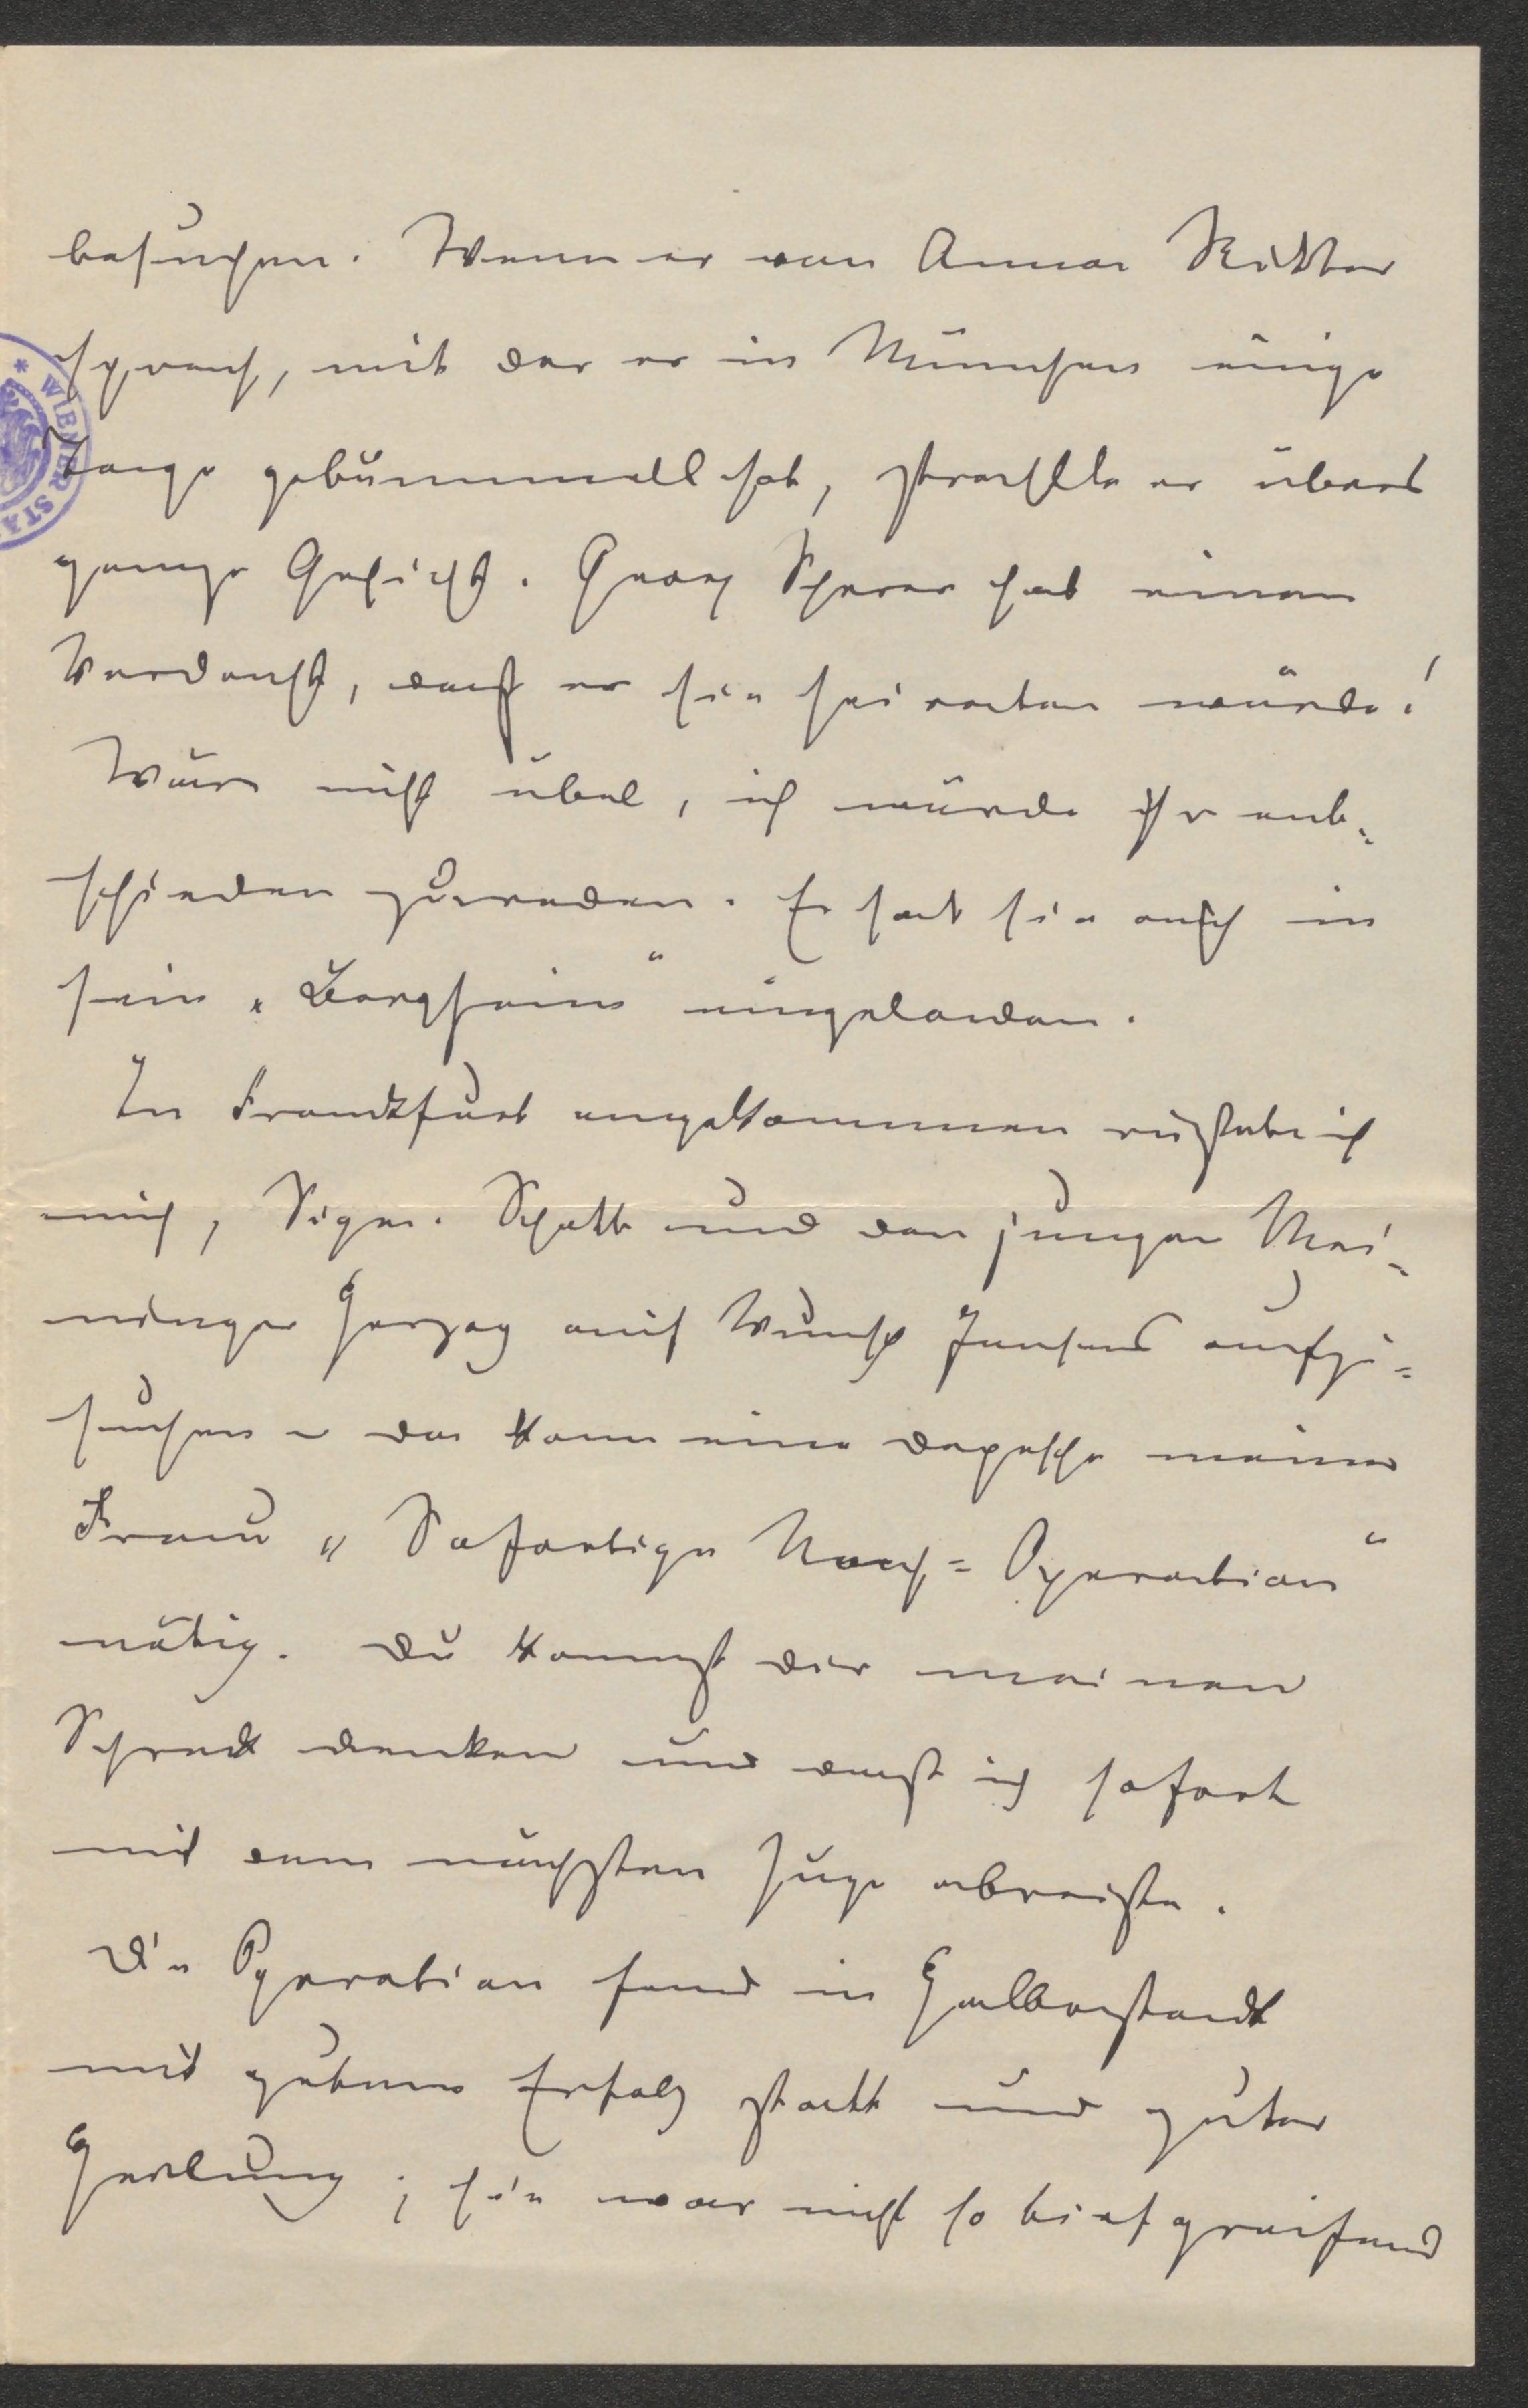 besuchen. Wenn er von Anna Ritter
sprach, mit der er in München einige
Tage gebummelt hat, strahlte er übers
ganze Gesicht. Georg Scherer hat einen
Verdacht, daß er sie heiraten würde!
Wäre nicht übel, ich würde ihr ent-
schieden zureden. Er hat sie auch in
sein „Bergheim" eingeladen.
In Frankfurt angekommen rüstete ich
mich, Sigm. Schott und den jungen Mei-
ninger Herzog auf Wunsch Jensens aufzu=
suchen – da kam eine Depesche meiner
Frau „Sofortige Nach=Operation"
nötig. Du kannst dir meinen
Schreck denken und daß ich sofort
mit dem nächsten Zuge abreiste.
Die Operation fand in Halberstadt
mit gutem Erfolg statt und guter
Heilung; sie war nicht so tiefgreifend
WIENER STA